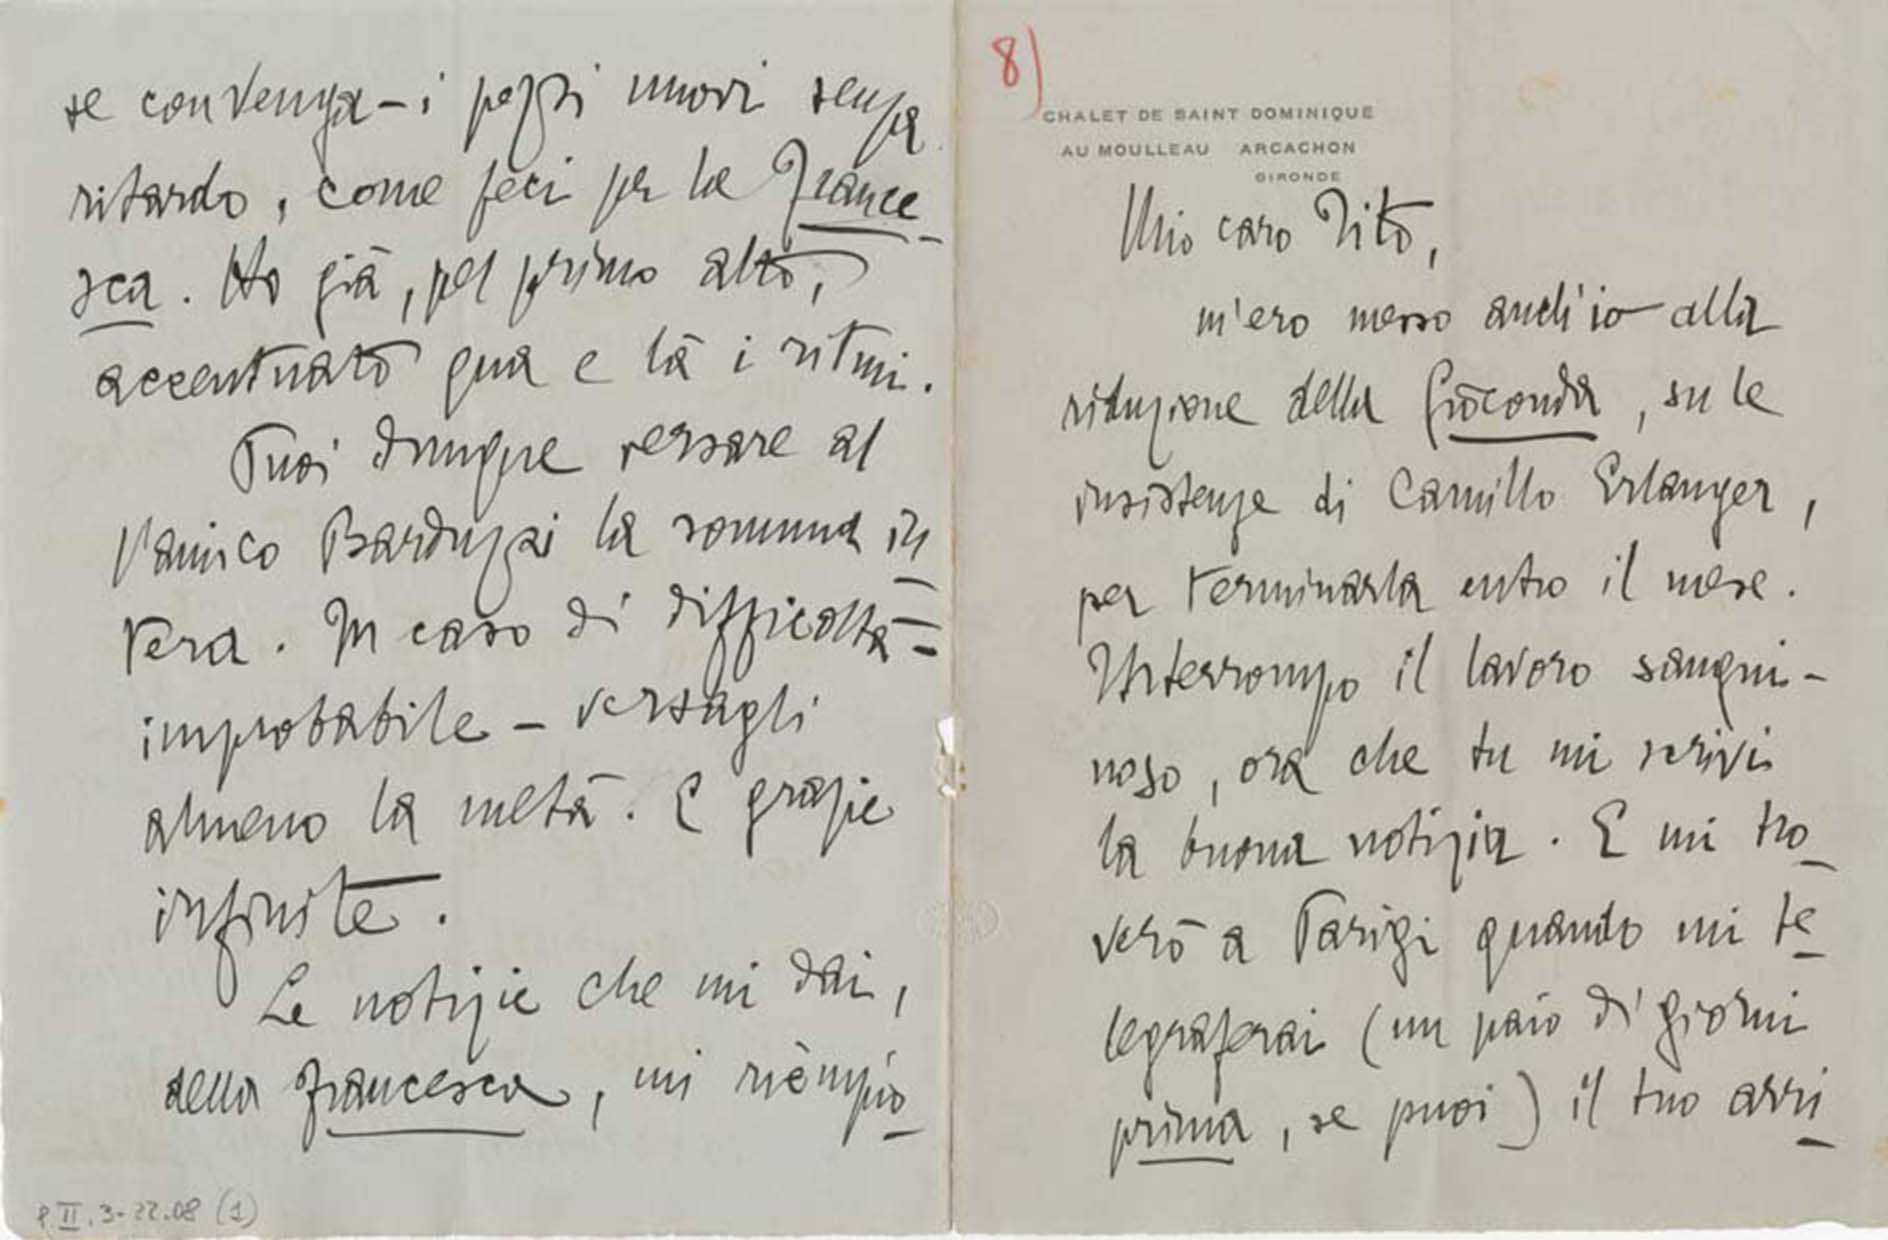 8)
CHALET DE SAINT DOMINIQUE
AU MOULLEAU ARCACHON
GIRONDE
Mio caro Tito,
m'ero messo anch'io alla
riduzione della Gioconda, su le
insistenze di Camillo Erlanger,
per terminarla entro il mese.
Interrompo il lavoro sangui-
noso, ora che tu mi scrivi
la buona notizia. E mi tro_
verò a Parigi quando mi te_
legraferai (un paio di giorni
prima, se puoi) il tuo arri_
se convenga – i pezzi nuovi senza
ritardo, come feci per la France-
sca. Ho già, pel primo atto,
accentuato qua e là i ritmi.
Puoi dunque versare al
l'amico Barduzzi la somma in_
tera. In caso di difficoltà –
improbabile – versagli
almeno la metà. E grazie
infinite.
Le notizie che mi dai,
della Francesca, mi rièmpio_
P.II.3-22.08 (1)